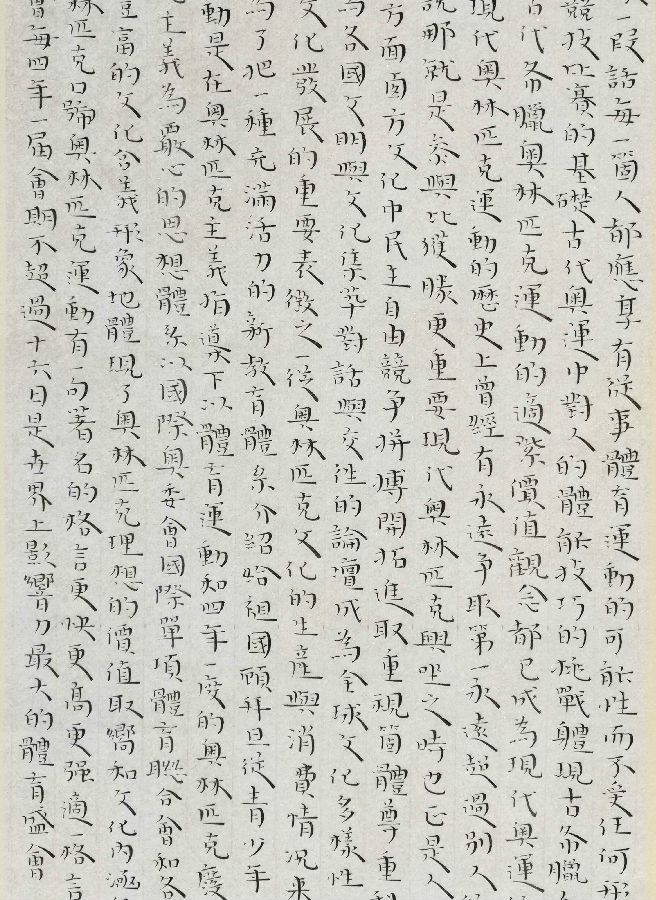 一段話每一箇人都應享有從事體育運動的可能性而不受任何形
競技比賽的基礎古代奧運中對人的體能技巧的挑戰體現古希臘
古代希臘奧林匹克運動的適業價值觀念都已成為現代奧運
現代奧林匹克運動的歷史上曾經有永遠爭取第一永遠超過別人
說那就是參與比獲勝更重要現代奧林匹克興旺之時也正是人
方面面方文化中民主自由競爭拼搏開拓進取重視箇體尊重
為各國文明與文化集萃對話與交往的論壇成為全球文化多樣性
文化發展的重要表徵之一從奧林匹克文化的生產與消費情況來
為了把一種充滿活力的新教育體系介紹給祖國顧拜旦從青少年
動是在奧林匹克主義指導下以體育運動和四年一度的奧林匹克慶
主義為嚴心的思想體系以國際奧委會國際單項體育聯合會和各
豐富的文化含義形象地體現了奧林匹克理想的價值取嚮和文化內涵
林匹克口號奧林匹克運動有一句著名的格言更快更高更强適一格言
會每四年一屆會期不超過十六日是世界上影響力最大的體育盛會